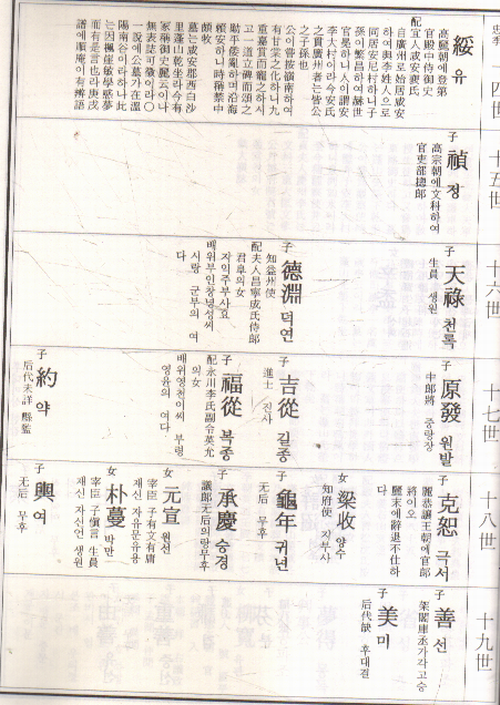 十四世
綏 유
高麗朝에登第
官殿中侍御史
配宜人咸安裵氏
自廣州로始居咸安
하여與李姓人으로
同居安尼村하니子
孫이繁昌하여赫世
官冕하니人이謂安
李大村이라今安氏
之貫廣州者는皆公
之子孫也
公이嘗按嶺南하여
有甘棠之化하니九
重嘉賞而寵之하시
고一道立碑而頌之
勦平倭亂하며沿海
賴安하니時稱禁中
頗牧
墓는咸安郡西白沙
里蓬山乾坐라今有
冢稱御史麗云이나
無表誌可徵이라○
一說에公墓가在溫
陽南谷이라하나此
는因楓崖敏學感夢
而有是言也라庚戌
譜에順庵이有辨語
十五世
子 禎 정
高宗朝에文科하여
官吏部摠郎
十六世
子 天祿 천록
生員 생원
子 德淵 덕연
知益州使
配夫人昌寧成氏侍郎
君阜의女
자익주부사요
배위부인창녕성씨
시랑 군부의 여
다
十七世
子 原發 원발
中郎將 중랑장
子 吉從 길종
進士 진사
子 福從 복종
配永川李氏副令英允
의女
배위영천이씨 부령
영윤의 여다
子 約 약
后代未詳 縣監
十八世
子 克恕 극서
麗恭讓王朝에官郎
將이오
麗末에辭退不仕하
다
女 梁收 양수
知府使 지부사
子 龜年 귀년
无后 무후
子 承慶 승경
議郎无后의랑무후
女 元宣 원선
宰臣 子有文有庸
재신 자유문유용
女 朴蔓 박만
宰臣 子愼言 生員
재신 자신언 생원
子 輿 여
无后 무후
十九世
子 善 선
架閣庫丞가각고승
子 美 미
后代缺 후대결